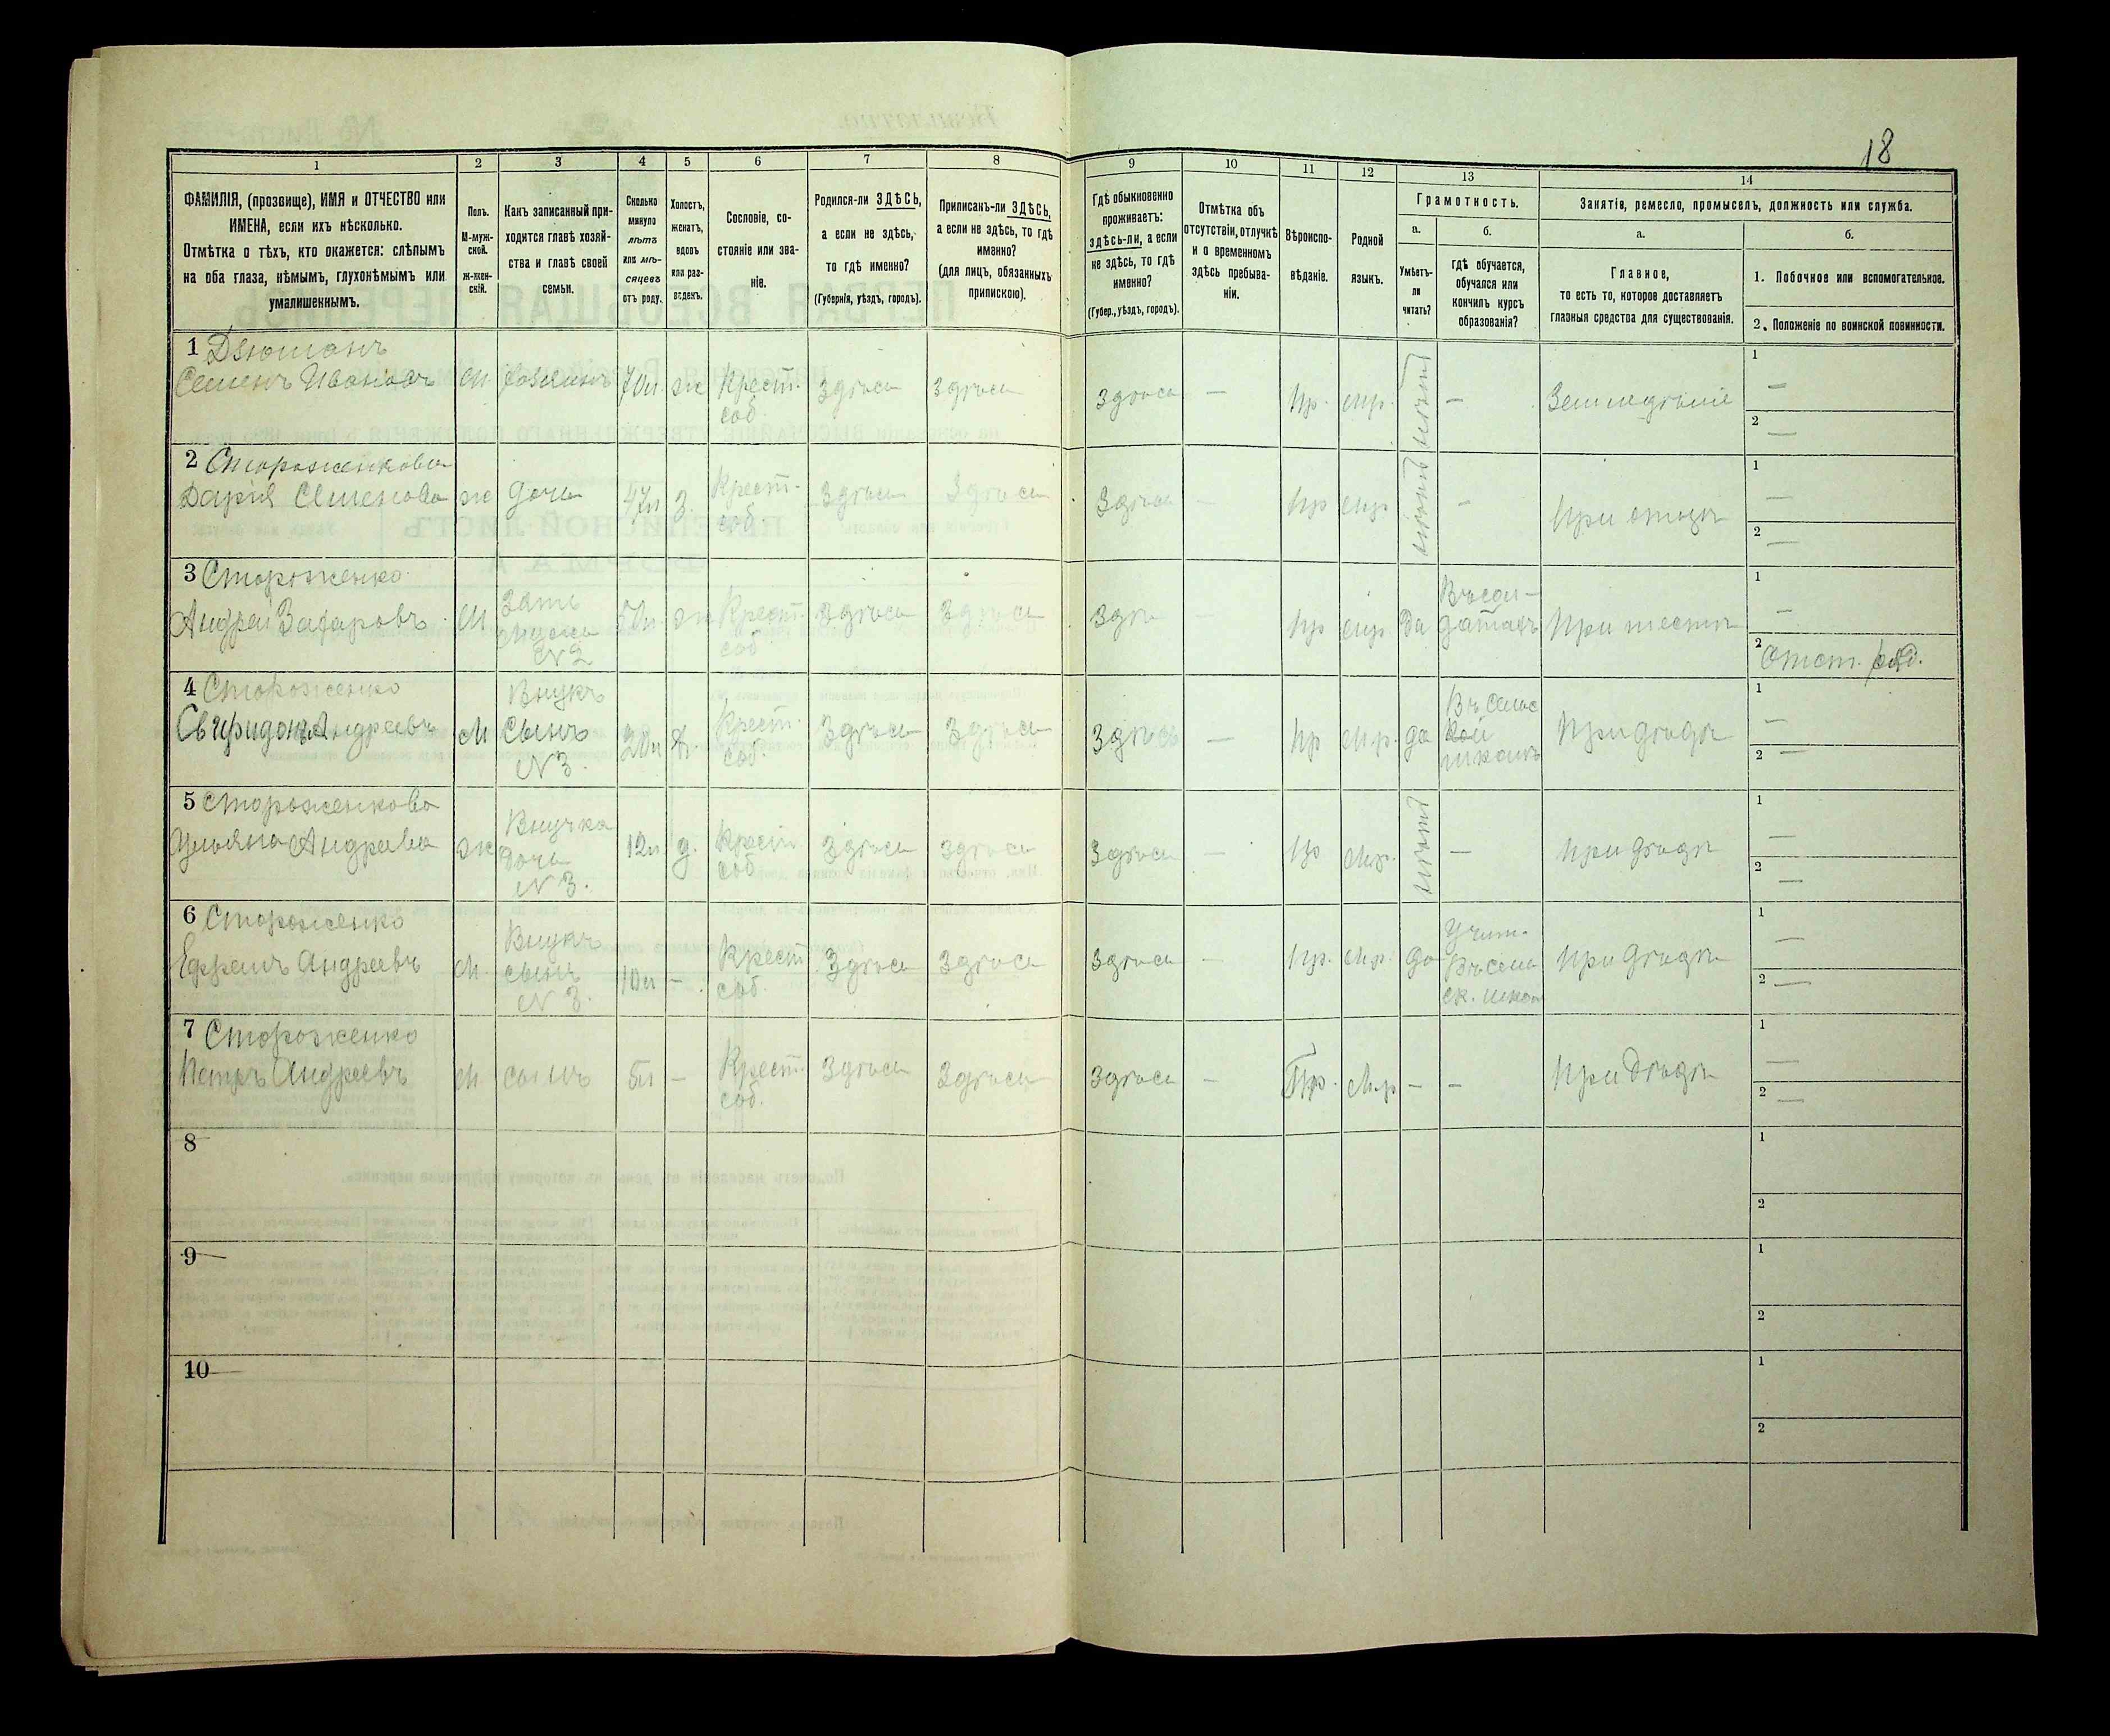 18
1 2 3 4 5 6 7 8 9 10 11 12 13 14
ФАМИЛІЯ, (прозвище), ИМЯ и ОТЧЕСТВО или
ИМЕНА, если ихъ нѣсколько.
Отмѣтка о тѣхъ, кто окажется: слѣпымъ
на оба глаза, нѣмымъ, глухонѣмымъ или
умалишеннымъ.
Полъ.
М-муж-
ской.
ж-жен-
скій.
Какъ записанный при-
ходится главѣ хозяй-
ства и главѣ своей
семьи.
Сколько
минуло
лѣтъ
или мѣ-
сяцевъ
отъ роду.
Холостъ,
женатъ,
вдовъ
или раз-
веденъ.
Сословіе, со-
стояніе или зва-
ніе.
Родился-ли ЗДѢСЬ,
а если не здѣсь,
то гдѣ именно?
(Губернія, уѣздъ, городъ).
Приписанъ-ли ЗДѢСЬ,
а если не здѣсь, то гдѣ
именно?
(для лицъ, обязанныхъ
припискою).
Гдѣ обыкновенно
проживаетъ:
здѣсь-ли, а если
не здѣсь, то гдѣ
именно?
(Губер., уѣздъ, городъ).
Отмѣтка объ
отсутствіи, отлучкѣ
и о временномъ
здѣсь пребыва-
ніи.
Вѣроиспо-
вѣданіе.
Родной
языкъ.
Грамотность.
а.
Умѣетъ-
ли
читать?
б.
гдѣ обучается,
обучался или
кончилъ курсъ
образованія?
Занятія, ремесло, промыселъ, должность или служба.
а.
Главное,
то есть то, которое доставляетъ
главныя средства для существованія.
б.
1. Побочное или вспомогательное.
2. Положеніе по воинской повинности.
1 Дзюманъ
Семенъ Ивановъ м. хозяинъ 70л ж Крест. соб. Здѣсь Здѣсь Здѣсь — пр. мр. нѣтъ — Земледѣліе 1 — 2 —
2 Стороженкова
Дарія Семенова ж дочь 47л з. Крест. соб. Здѣсь Здѣсь Здѣсь — пр мр — При отцѣ 1 — 2 —
3 Стороженко
Андрей Захаровъ м зять мужъ №2 ж Крест. соб Здѣсь Здѣсь — пр мр да Въ сол-
датахъ При тестѣ 1 — 2 Отст. ряд.
4 Стороженко
Свиридонъ Андреевъ м Внукъ
сынъ
№3. 20л х. Крест. соб. Здѣсь Здѣсь Здѣсь — пр мр. да Въ сельс
кой
школѣ При дѣдѣ 1 — 2 —
5 Стороженкова
Ульяна Андреева ж Внучка
дочь
№3. 12л д. Крест. соб Здѣсь Здѣсь Здѣсь — пр мр. — При дѣдѣ 1 — 2 —
6 Стороженко
Ефремъ Андреевъ м. Внукъ
сынъ
№3. 10л — Крест соб. Здѣсь Здѣсь Здѣсь — пр. мр. да Учит.
Въ сель
ск. школ При дѣдѣ 1 — 2 —
7 Стороженко
Петръ Андреевъ м сынъ 5л — Крест. соб. Здѣсь Здѣсь Здѣсь — пр. мр — — При дѣдѣ 1 — 2 —
8 1 2
9 1 2
10 1 2